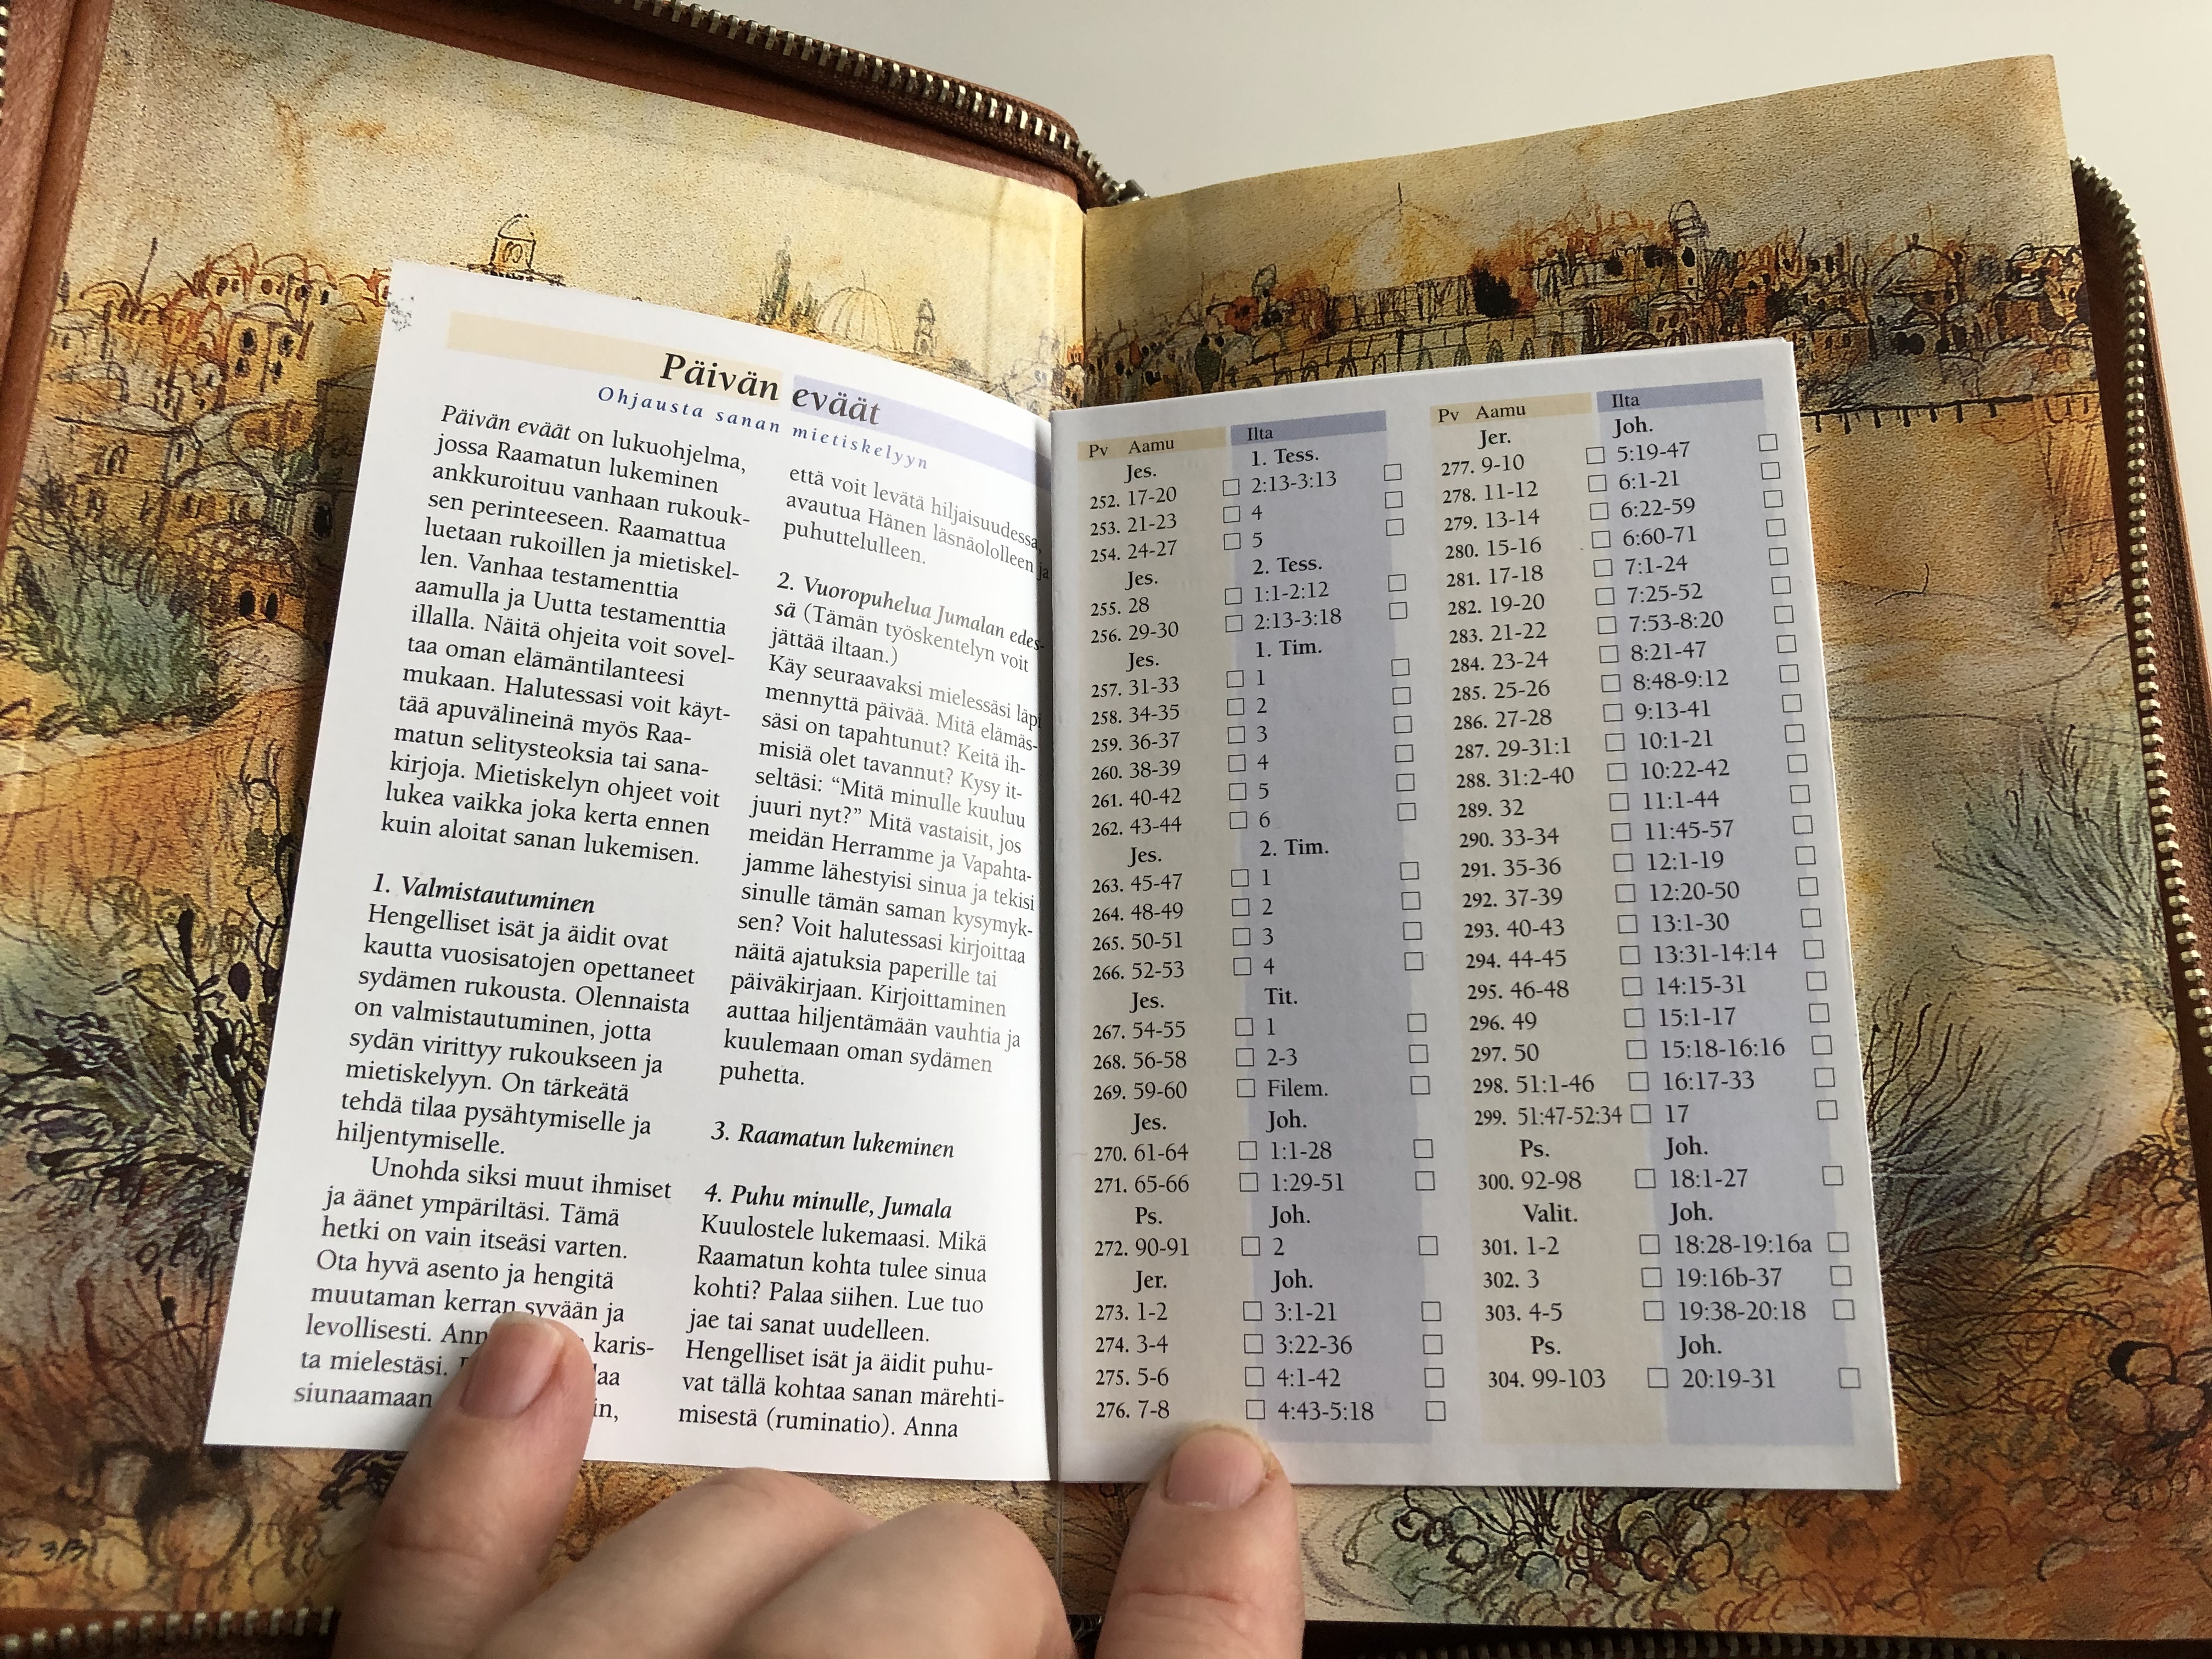 Päivän eväät
Ohjausta sanan mietiskelyyn
Päivän eväät on lukuohjelma,
jossa Raamatun lukeminen
ankkuroituu vanhaan rukouk-
sen perinteeseen. Raamattua
luetaan rukoillen ja mietiskel-
len. Vanhaa testamenttia
aamulla ja Uutta testamenttia
illalla. Näitä ohjeita voit sovel-
taa oman elämäntilanteesi
mukaan. Halutessasi voit käyt-
tää apuvälineinä myös Raa-
matun selitysteoksia tai sana-
kirjoja. Mietiskelyn ohjeet voit
lukea vaikka joka kerta ennen
kuin aloitat sanan lukemisen.
1. Valmistautuminen
Hengelliset isät ja äidit ovat
kautta vuosisatojen opettaneet
sydämen rukousta. Olennaista
on valmistautuminen, jotta
sydän virittyy rukoukseen ja
mietiskelyyn. On tärkeätä
tehdä tilaa pysähtymiselle ja
hiljentymiselle.
Unohda siksi muut ihmiset
ja äänet ympäriltäsi. Tämä
hetki on vain itseäsi varten.
Ota hyvä asento ja hengitä
muutaman kerran syvään ja
levollisesti. karis-
ta mielestäsi.
siunaamaan
että voit levätä hiljaisuudessa,
avautua Hänen läsnäololleen ja
puhuttelulleen.
2. Vuoropuhelua Jumalan edes-
sä (Tämän työskentelyn voit
jättää iltaan.)
Käy seuraavaksi mielessäsi läpi
mennyttä päivää. Mitä elämäs-
säsi on tapahtunut? Keitä ih-
misiä olet tavannut? Kysy it-
seltäsi: “Mitä minulle kuuluu
juuri nyt?” Mitä vastaisit, jos
meidän Herramme ja Vapahta-
jamme lähestyisi sinua ja tekisi
sinulle tämän saman kysymyk-
sen? Voit halutessasi kirjoittaa
näitä ajatuksia paperille tai
päiväkirjaan. Kirjoittaminen
auttaa hiljentämään vauhtia ja
kuulemaan oman sydämen
puhetta.
3. Raamatun lukeminen
4. Puhu minulle, Jumala
Kuulostele lukemaasi. Mikä
Raamatun kohta tulee sinua
kohti? Palaa siihen. Lue tuo
jae tai sanat uudelleen.
Hengelliset isät ja äidit puhu-
vat tällä kohtaa sanan märehti-
misestä (ruminatio). Anna
Pv Aamu Ilta
Jes. 1. Tess.
252. 17-20 2:13-3:13
253. 21-23 4
254. 24-27 5
Jes. 2. Tess.
255. 28 1:1-2:12
256. 29-30 2:13-3:18
Jes. 1. Tim.
257. 31-33 1
258. 34-35 2
259. 36-37 3
260. 38-39 4
261. 40-42 5
262. 43-44 6
Jes. 2. Tim.
263. 45-47 1
264. 48-49 2
265. 50-51 3
266. 52-53 4
Jes. Tit.
267. 54-55 1
268. 56-58 2-3
269. 59-60 Filem.
Jes. Joh.
270. 61-64 1:1-28
271. 65-66 1:29-51
Ps. Joh.
272. 90-91 2
Jer. Joh.
273. 1-2 3:1-21
274. 3-4 3:22-36
275. 5-6 4:1-42
276. 7-8 4:43-5:18
Pv Aamu Ilta
Jer. Joh.
277. 9-10 5:19-47
278. 11-12 6:1-21
279. 13-14 6:22-59
280. 15-16 6:60-71
281. 17-18 7:1-24
282. 19-20 7:25-52
283. 21-22 7:53-8:20
284. 23-24 8:21-47
285. 25-26 8:48-9:12
286. 27-28 9:13-41
287. 29-31:1 10:1-21
288. 31:2-40 10:22-42
289. 32 11:1-44
290. 33-34 11:45-57
291. 35-36 12:1-19
292. 37-39 12:20-50
293. 40-43 13:1-30
294. 44-45 13:31-14:14
295. 46-48 14:15-31
296. 49 15:1-17
297. 50 15:18-16:16
298. 51:1-46 16:17-33
299. 51:47-52:34 17
Ps. Joh.
300. 92-98 18:1-27
Valit. Joh.
301. 1-2 18:28-19:16a
302. 3 19:16b-37
303. 4-5 19:38-20:18
Ps. Joh.
304. 99-103 20:19-31